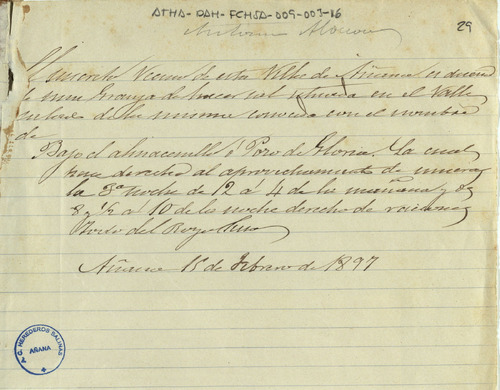 ATHA-DAH-FCHSA-009-003-16
29
Antonio
El suscrito Vecino de esta Villa de Añana es dueño
de una Granja de hacer sal situada en el Valle
salado de la misma conocida con el nombre
de
Bajo el almacenillo ó Pozo de Gloria. La cual
tiene derecho al aprovechamiento de muera
la 3ª noche de 12 á 4 de la mañana y de
8 y ½ á 10 de la noche derecho de
del Royo
Añana 15 de Febrero de 1897
C. G. HEREDEROS SALINAS
AÑANA